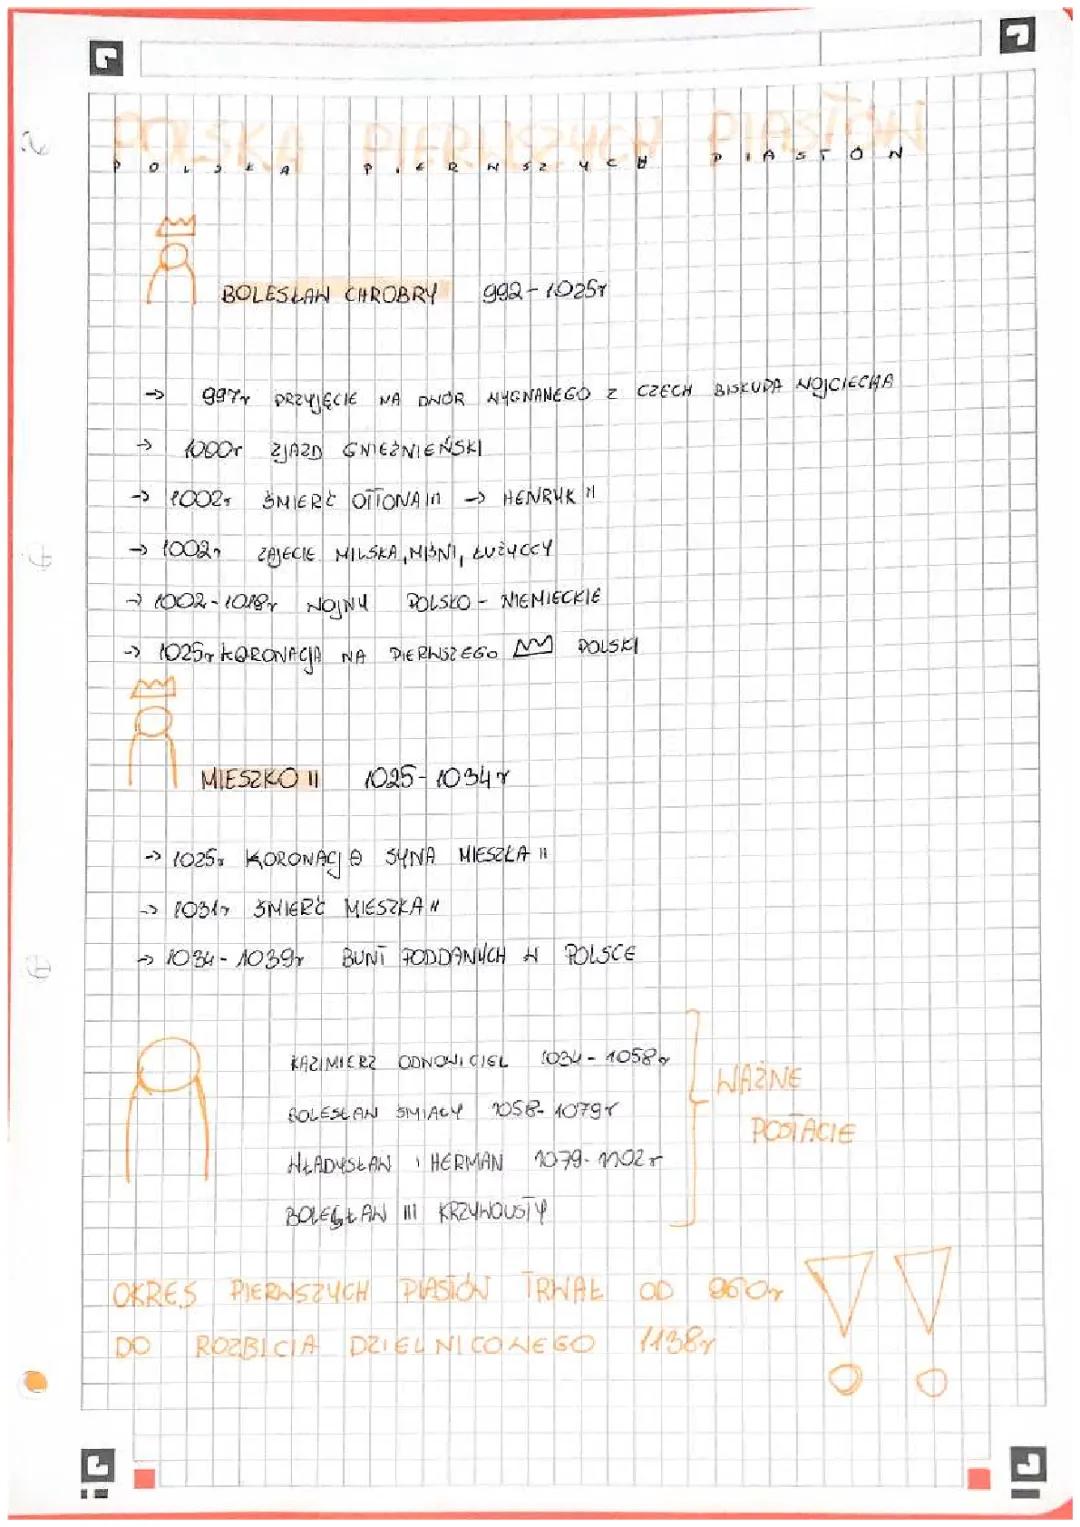 POLSKA PIERWSZYCH PIASTÓW
POLSKA PIERWSZYCH PIASTÓW
BOLESŁAW CHROBRY 992-1025r
→ 997r PRZYJĘCIE NA DWÓR WYGNANEGO Z CZECH BISKUPA WOJCIECHA
→ 1000r ZJAZD GNIEŹNIEŃSKI
→ 1002r ŚMIERĆ OTTONA III → HENRYK II
→ 1002r ZAJĘCIE MILSKA, MIŚNI, ŁUŻYCCY
→ 1002-1018r WOJNY POLSKO - NIEMIECKIE
→ 1025r KORONACJA NA PIERWSZEGO POLSKI
MIESZKO II 1025-1034r
→ 1025r KORONACJA SYNA MIESZKA II
→ 1031r ŚMIERĆ MIESZKA II
→ 1034-1039r BUNT PODDANYCH W POLSCE
KAZIMIERZ ODNOWICIEL 1034-1058r
BOLESŁAW ŚMIAŁY 1058-1079r
WŁADYSŁAW I HERMAN 1079-1102r
BOLESŁAW III KRZYWOUSTY
WAŻNE
POSTACIE
OKRES PIERWSZYCH PIASTÓW TRWAŁ OD 960r
DO ROZBICIA DZIELNICOWEGO 1138r